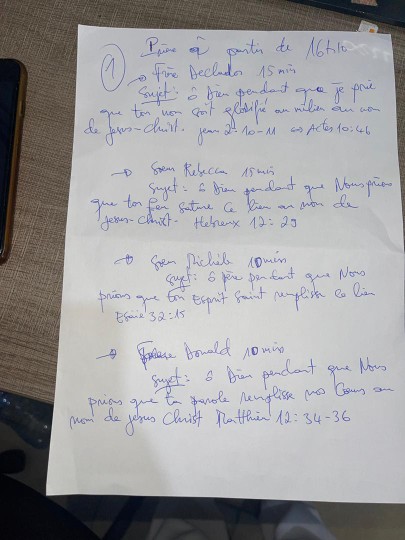 1
Prière à partir de 16h10
→ Frère Declados 15 min
Sujet : ô Dieu pendant que je prie
que ton nom soit glorifié au milieu au nom
de jesus-christ. jean 2-10-11 Actes 10:46
→ Sœur Rebecca 15min
Sujet : ô Dieu pendant que Nous prions
que ton feu sature ce lieu au nom de
jesus-christ. Hebreux 12:29
→ Sœur Michèle 10min
Sujet : ô père pendant que Nous
prions que ton Esprit Saint remplisse ce lieu
Esaie 32:15
→ Donald 10min
Sujet : ô Dieu pendant que Nous
prions que ta parole remplisse nos Cœurs au
nom de jesus Christ Matthieu 12:34-36